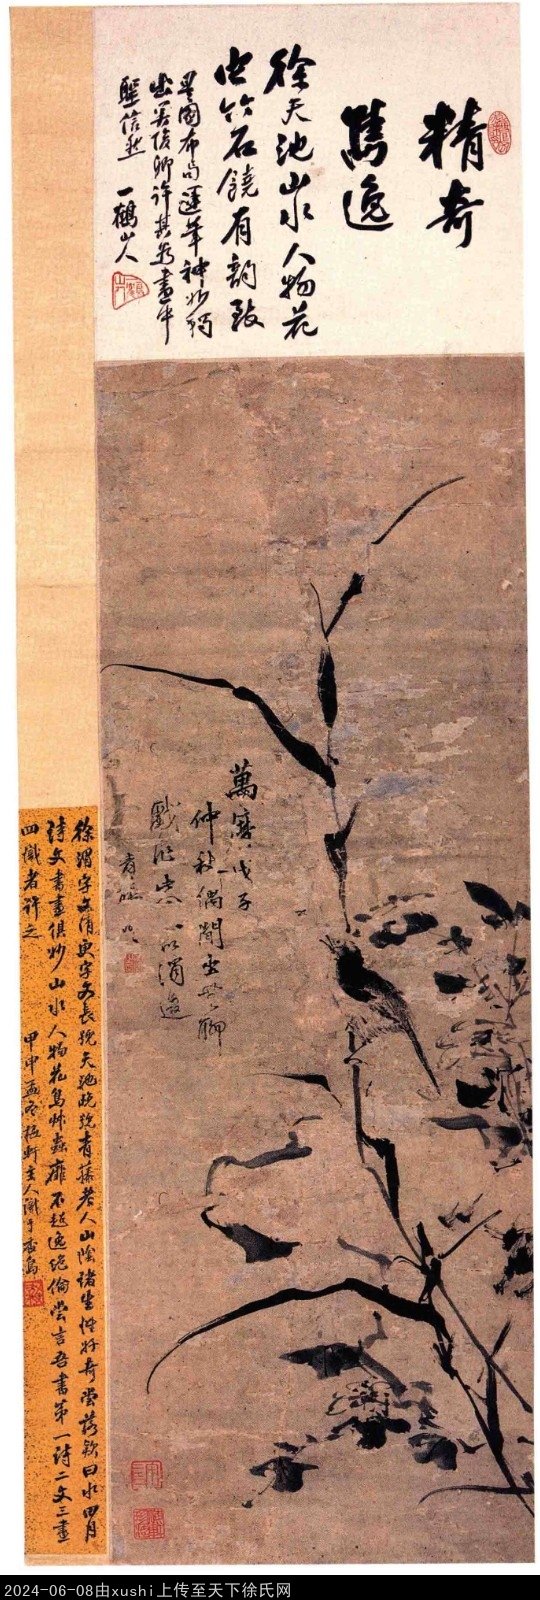 精奇
雋逸
徐天池山水人物花
虫竹石饒有韵致
是圖布局運筆神妙獨
出吴俊卿許其為畫中
聖信然
一鶴山人
萬曆戊子
仲秋偶閒坐無聊
戲作此以消遣
青藤
徐渭字文清更字文長號天池晚號青藤老人山陰諸生性好奇嘗落欵曰水田月
詩文書畫俱妙山水人物花鳥草蟲靡不超逸絶倫嘗言吾書第一詩二文三畫
四識者許之
甲申孟冬
主人識于
2024-06-08由xushi上传至天下徐氏网